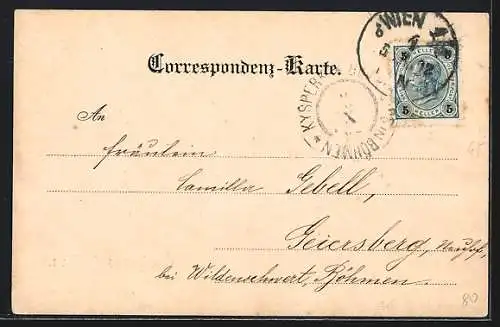 WIEN
5 5
HELLER
5 5
Correspondenz-Karte.
KYSPERK
IN BÖHMEN *
An
Fräulein
Camilla Gebell,
Geiersberg,
bei Wildenschwert, Böhmen.
80